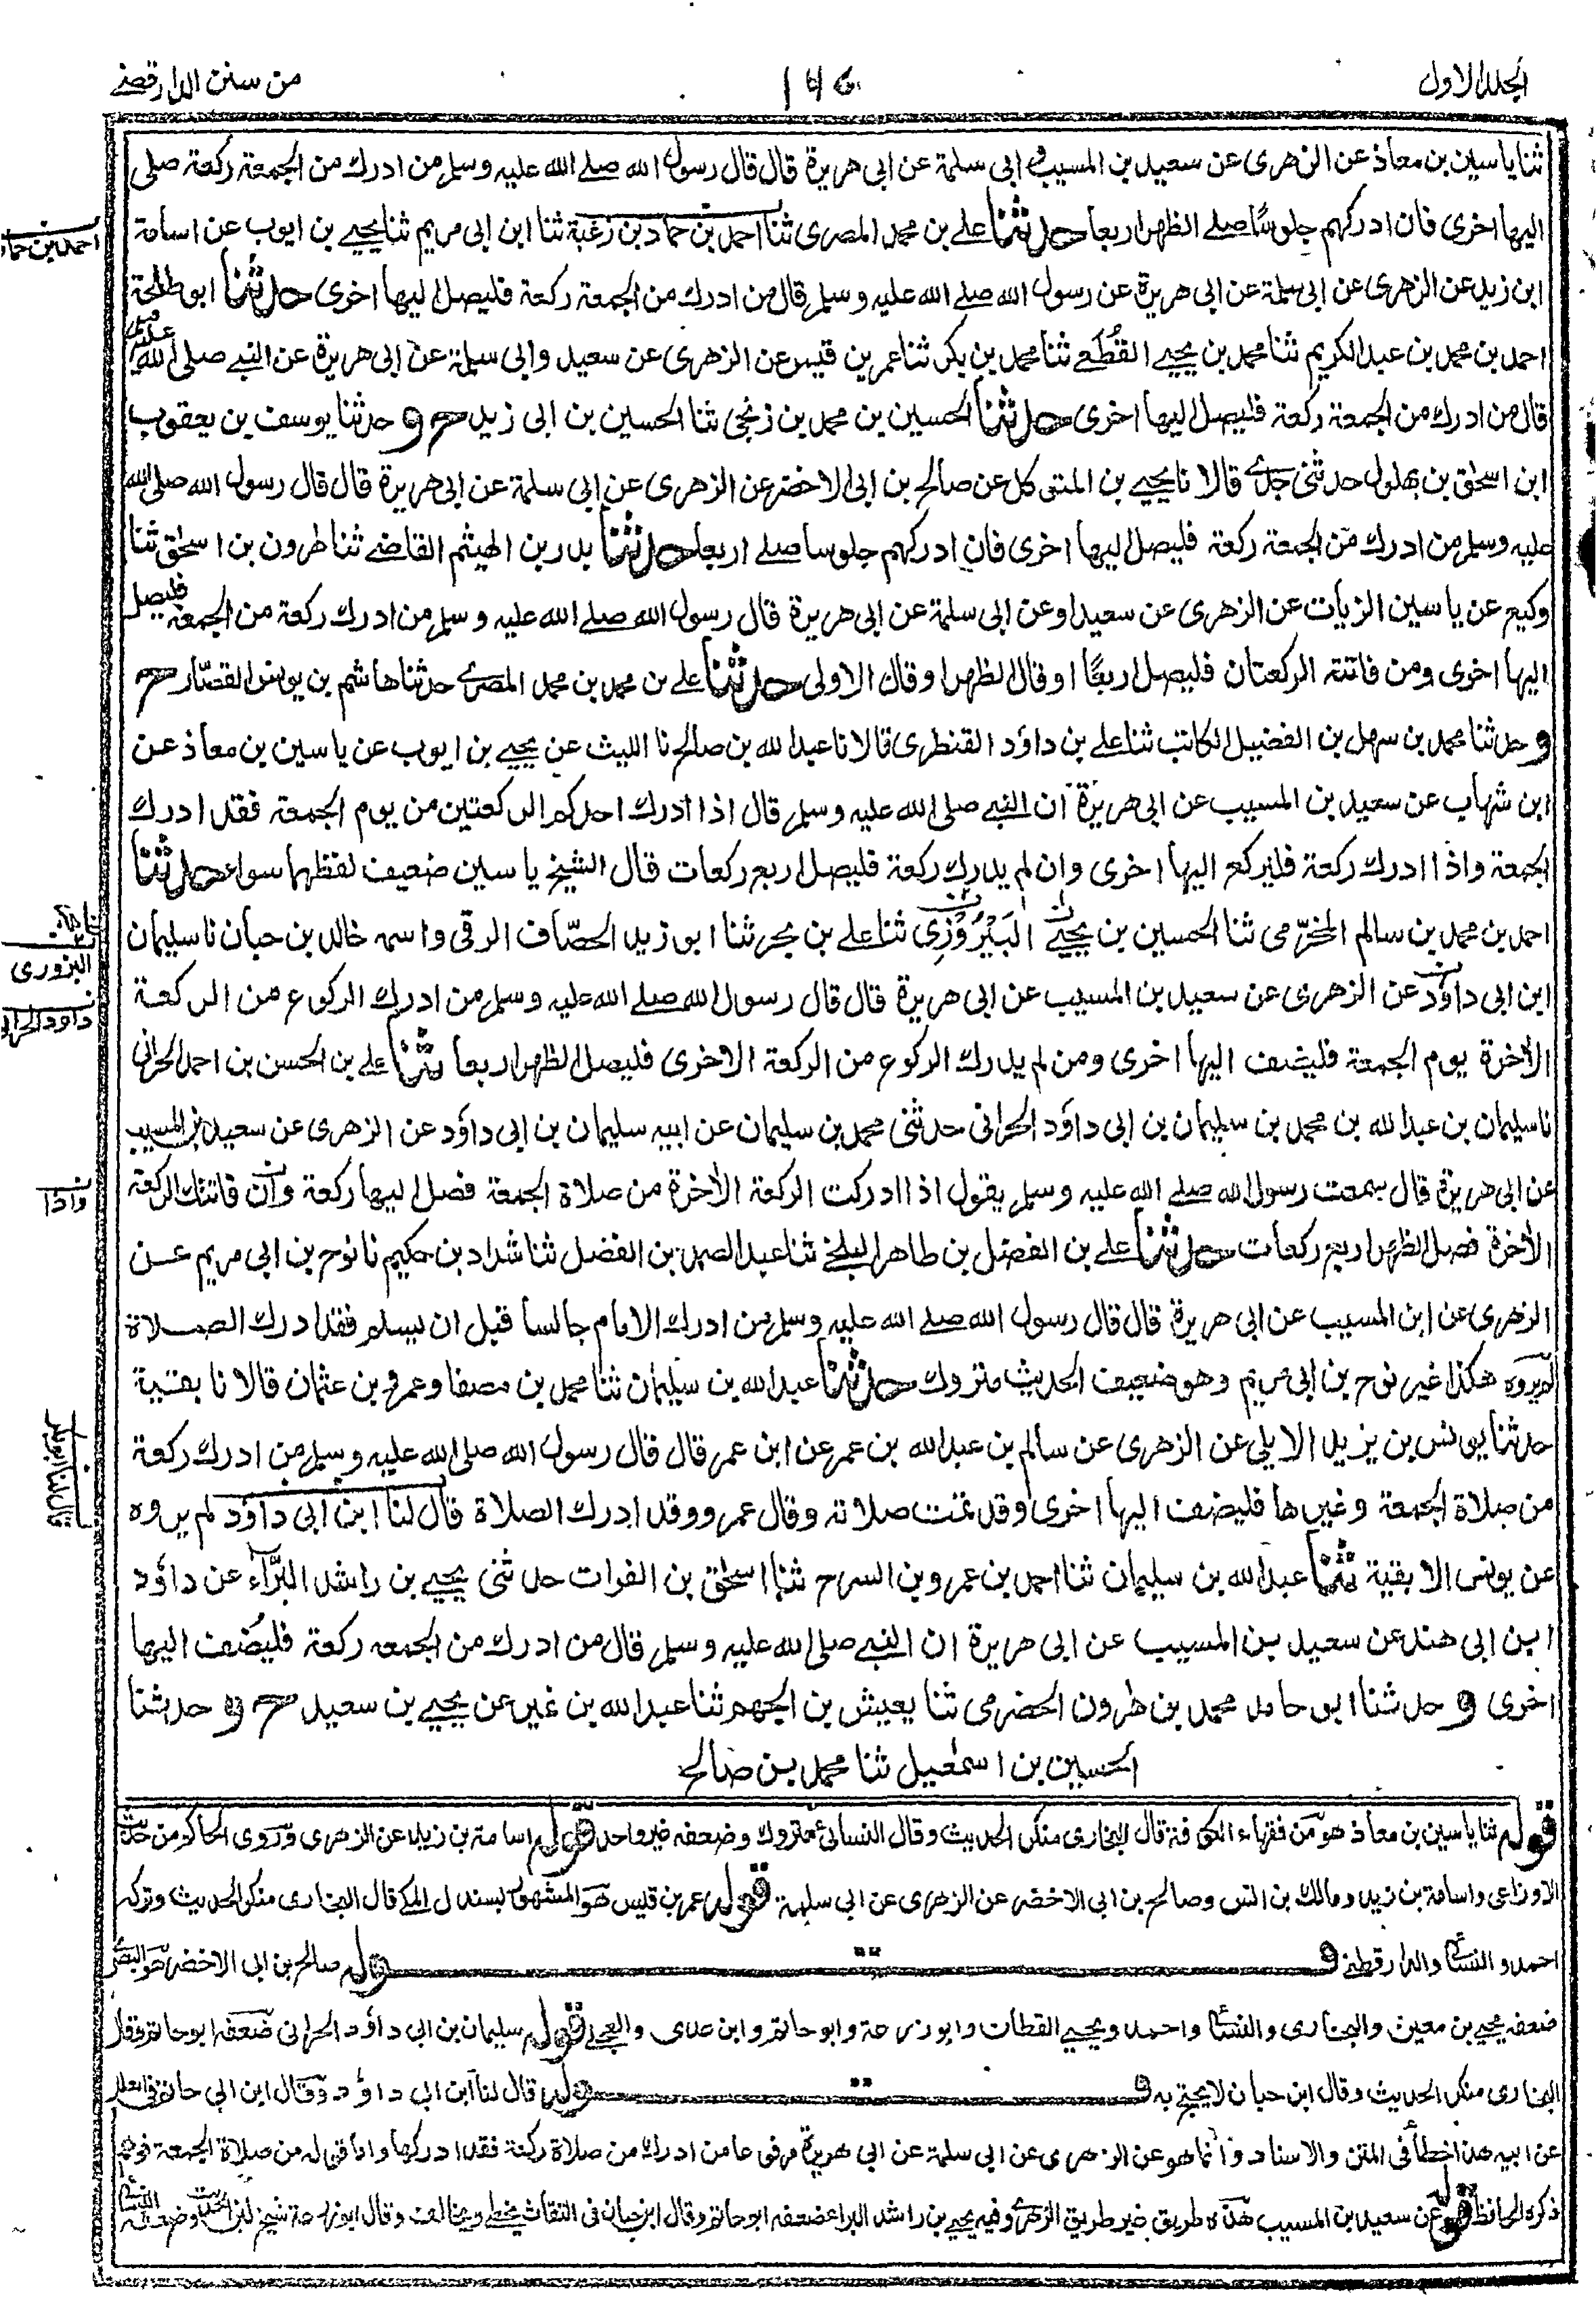 الجلد الاول
من سنن الدارقطنے
ثنا ياسين بن معاذ عن الزهرى عن سعيد بن المسيب و ابى سلمة عن ابى هريرة قال قال رسول الله صلے الله عليه وسلم من ادرك من الجمعة ركعة صلى
اليها اخرى فان ادركهم جلوسًا صلے الظهر اربعا حدثنا علے بن محمد المصرى ثنا احمد بن حماد بن زغبة ثنا ابن ابى مريم ثنا يحيے بن ايوب عن اسامة
ابن زيد عن الزهرى عن ابى سلمة عن ابى هريرة عن رسول الله صلے الله عليه وسلم قال من ادرك من الجمعة ركعة فليصل اليها اخرى حدثنا ابو طلحة
احمد بن محمد بن عبد الكريم ثنا محمد بن يحيے القُطَعے ثنا محمد بن بكر ثنا عمر بن قيس عن الزهرى عن سعيد وابى سلمة عن ابى هريرة عن النبے صلى الله عليه وسلم
قال من ادرك من الجمعة ركعة فليصل اليها اخرى حدثنا الحسين بن محمد بن زنجى ثنا الحسين بن ابى زيد ح و حدثنا يوسف بن يعقوب
ابن اسحٰق بن بهلول حدثنى جدے قالا نا يحيے بن المتى كل عن صالح بن ابى الاخضر عن الزهرى عن ابى سلمة عن ابى هريرة قال قال رسول الله صلى الله
عليه وسلم من ادرك من الجمعة ركعة فليصل اليها اخرى فان ادركهم جلوسا صلے اربعا حدثنا بدر بن الهيثم القاضے ثنا هٰرون بن اسحٰق ثنا
وكيع عن ياسين الزيات عن الزهرى عن سعيد او عن ابى سلمة عن ابى هريرة قال رسول الله صلے الله عليه وسلم من ادرك ركعة من الجمعة فليصل
اليها اخرى ومن فاتته الركعتان فليصل اربعًا او قال الظهر او قال الاولى حدثنا علے بن محمد بن محمد المصرے حدثنا هاشم بن يونس القصّار ح
و حدثنا محمد بن سهل بن الفضيل الكاتب ثنا علے بن داؤد القنطرى قالا نا عبد الله بن صالح نا الليث عن يحيے بن ايوب عن ياسين بن معاذ عن
ابن شهاب عن سعيد بن المسيب عن ابى هريرة ان النبے صلى الله عليه وسلم قال اذا ادرك احدكم الركعتين من يوم الجمعة فقد ادرك
الجمعة واذا ادرك ركعة فليركع اليها اخرى وان لم يدرك ركعة فليصل اربع ركعات قال الشيخ ياسين ضعيف لفظهما سواء حدثنا
احمد بن محمد بن سالم المخرّمى ثنا الحسين بن يحيے البَيْرُوْزِى ثنا علے بن بحر ثنا ابو زيد الخصّاف الرقى واسمه خالد بن حبان نا سليمان
ابن ابى داؤد عن الزهرى عن سعيد بن المسيب عن ابى هريرة قال قال رسول الله صلے الله عليه وسلم من ادرك الركوع من الركعة
الآخرة يوم الجمعة فليضف اليها اخرى ومن لم يدرك الركوع من الركعة الاخرى فليصل الظهر اربعا ثنا علے بن الحسن بن احمد الحرانى
نا سليمان بن عبد الله بن محمد بن سليمان بن ابى داؤد الحرانى حدثنى محمد بن سليمان عن ابيه سليمان بن ابى داؤد عن الزهرى عن سعيد بن المسيب
عن ابى هريرة قال سمعت رسول الله صلے الله عليه وسلم يقول اذا ادركت الركعة الآخرة من صلاة الجمعة فصل اليها ركعة وان فاتتك الركعة
الآخرة فصل الظهر اربع ركعات حدثنا علے بن الفضل بن طاهر البلخے ثنا عبد الصمد بن الفضل ثنا شداد بن حكيم نا نوح بن ابى مريم عن
الزهرى عن ابن المسيب عن ابى هريرة قال قال رسول الله صلے الله عليه وسلم من ادرك الامام جالسا قبل ان يسلم فقد ادرك الصلاة
لم يروه هكذا غير نوح بن ابى مريم وهو ضعيف الحديث متروك حدثنا عبد الله بن سليمان ثنا محمد بن مصفا وعمرو بن عثمان قالا نا بقية
حدثنا يونس بن يزيد الايلى عن الزهرى عن سالم بن عبد الله بن عمر عن ابن عمر قال قال رسول الله صلى الله عليه وسلم من ادرك ركعة
من صلاة الجمعة وغيرها فليضف اليها اخرى وقد تمت صلاته وقال عمرو وقد ادرك الصلاة قال لنا ابن ابى داؤد لم يروه
عن يونس الا بقية ثنا عبد الله بن سليمان ثنا احمد بن عمرو بن السرح ثنا اسحٰق بن الفرات حدثنى يحيے بن راشد البرَّاء عن داؤد
ابن ابى هند عن سعيد بن المسيب عن ابى هريرة ان النبے صلى الله عليه وسلم قال من ادرك من الجمعه ركعة فليُضف اليها
اخرى و حدثنا ابو حامد محمد بن هٰرون الحضرمى ثنا يعيش بن الجهم ثنا عبد الله بن نمير عن يحيے بن سعيد ح و حدثنا
الحسين بن اسمٰعيل ثنا محمد بن صالح
احمد بن حماد
البزورى
داود الحرانى
واذا
قال لنا ابو بدر
قوله ثنا ياسين بن معاذ هو من فقهاء الكوفة قال البخارى منكر الحديث وقال النسائى متروك وضعفه غير واحد قوله اسامة بن زيد عن الزهرى وروى الحاكم من حديث
الاوزاعى واسامة بن زيد ومالك بن انس وصالح بن ابى الاخضر عن الزهرى عن ابى سلمة قوله عمر بن قيس هو المشهور بسندل المكے قال البخارى منكر الحديث وتركه
احمد والنسائى والدارقطنے قوله صالح بن ابى الاخضر هو البصرے
ضعفه يحيے بن معين والبخارى والنسائى واحمد ويحيے القطان وابو زرعة وابو حاتم وابن عدى والعجلے قوله سليمان بن ابى داؤد الحرانى ضعفه ابو حاتم وقال
البخارى منكر الحديث وقال ابن حبان لا يحتج به قوله قال لنا ابن ابى داؤد وقال ابن ابى حاتم فى العلل
عن ابيه هذا خطأ فى المتن والاسناد وانما هو عن الزهرى عن ابى سلمة عن ابى هريرة مرفوعا من ادرك من صلاة ركعة فقد ادركها واما قوله من صلاة الجمعة فوهم
ذكره الحافظ قوله عن سعيد بن المسيب هذه طريق غير طريق الزهرے وفيه يحيے بن راشد البراء ضعفه ابو حاتم وقال ابن حبان فى الثقات يخطے ويخالف وقال ابو زرعة شيخ لين الحديث وضعفه النسائى